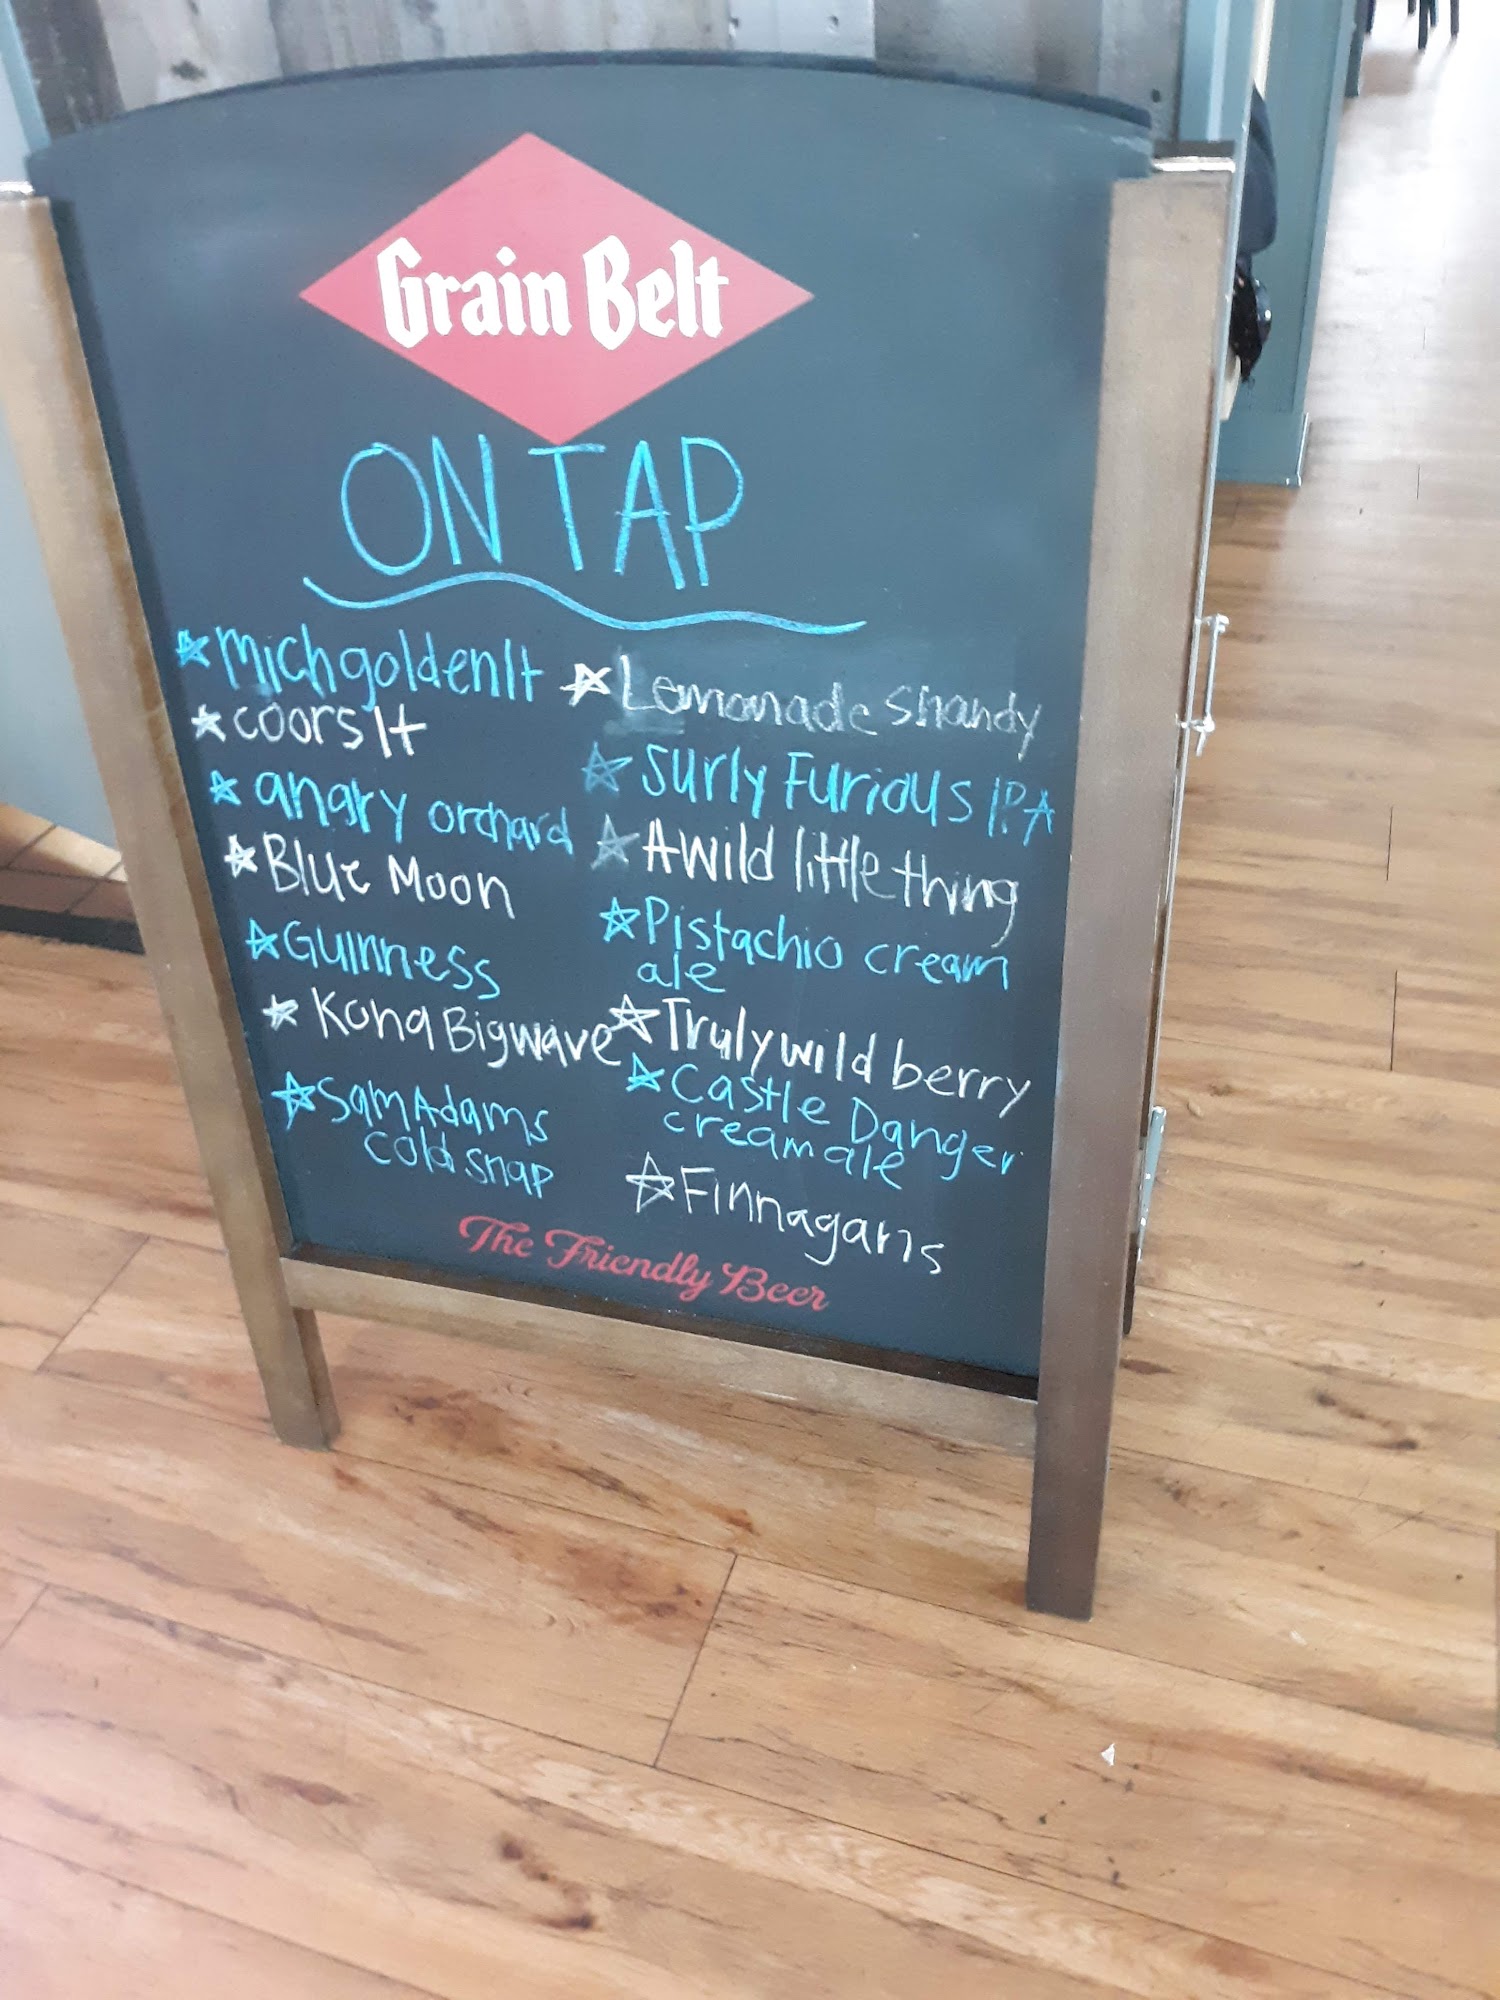 Grain Belt
ON TAP
Mich golden lt
coors lt
angry orchard
Blue Moon
Guinness
Kona Big wave
Sam Adams
cold snap
Lemonade shandy
surly Furious IPA
A wild little thing
Pistachio cream
ale
Truly wild berry
Castle Danger
cream ale
Finnagans
The Friendly Beer